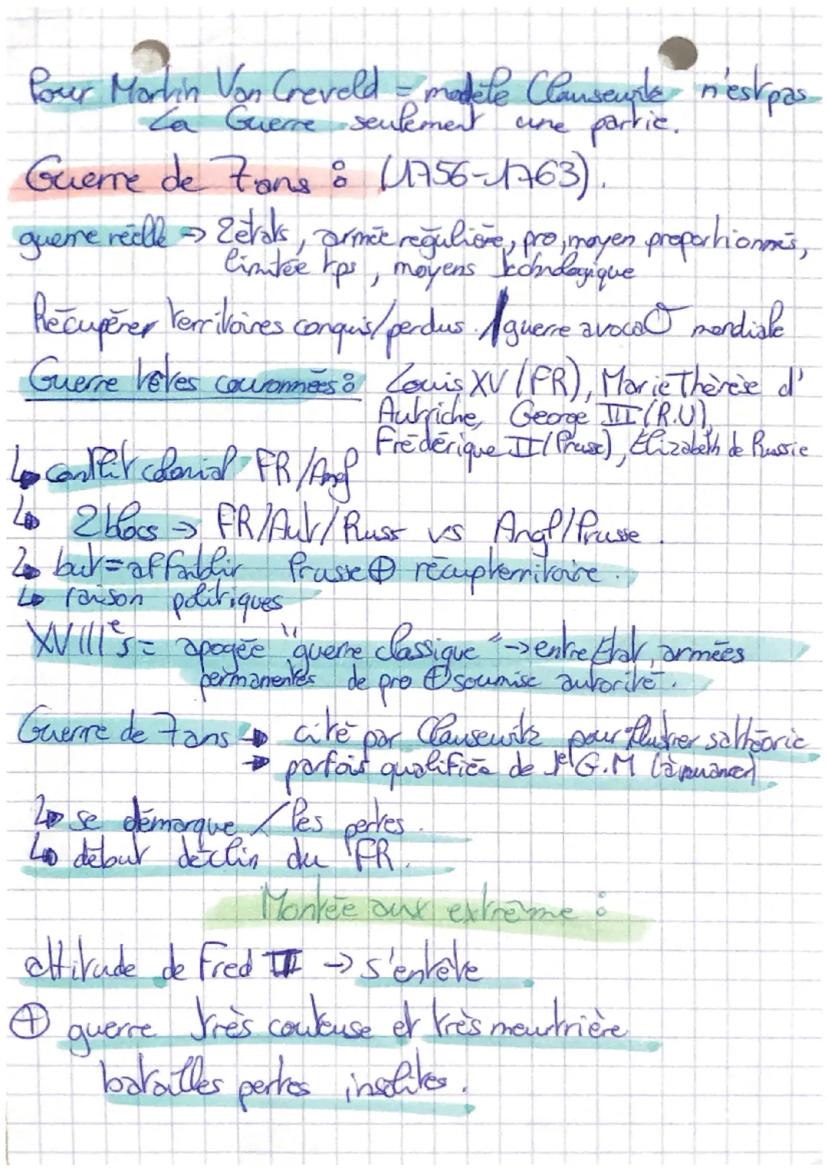 Pour Martin Van Creveld = modèle Clausewitz n'est pas
La Guerre seulement une partie.
Guerre de 7 ans : (1756-1763).
guerre réelle → 2 états, armée régulière, pro, moyen proportionnés,
limitée tps, moyens technologique
Récupérer territoires conquis/perdus / guerre à vocaO mondiale
Guerre têtes couronnées : Louis XV (FR), Marie Thérèse d'
Autriche, George III (R.U),
Frédérique II (Prusse), Elizabeth de Russie
↳ conflit colonial FR/Angl
↳ 2 blocs → FR/Aut/Russ vs Angl/Prusse.
↳ but = affaiblir Prusse ⊕ récup territoire.
↳ raison politiques
XVIIIe s = apogée "guerre classique" → entre Etat, armées
permanentes de pro ⊕ soumise autorité.
Guerre de 7 ans → cité par Clausewitz pour illustrer sa théorie
→ parfois qualifiée de 1e G.M (à nuancer)
↳ se démarque / les pertes.
↳ début déclin du FR.
Montée aux extrême :
attitude de Fred II → s'entête
⊕ guerre très couteuse et très meurtrière
batailles pertes insolites.